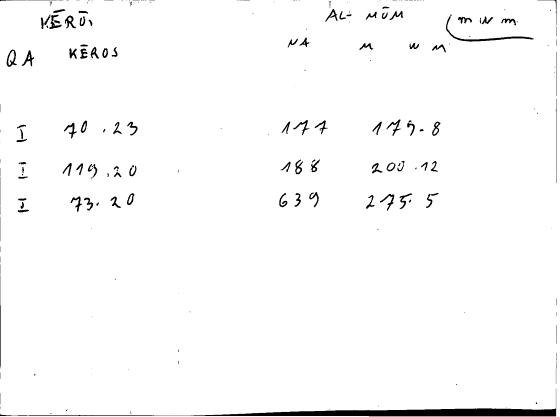 KĒRŌ, AL- MŪM (m w m
QA KĒROS NA M W M
I 70.23 177 179.8
I 119.20 188 200.12
I 73.20 639 275.5